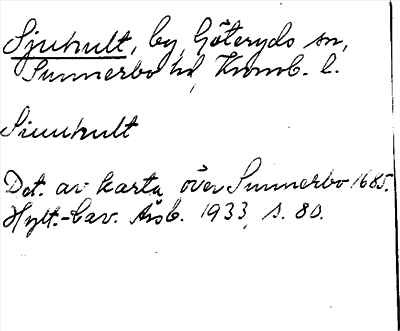 Sjuhult, by, Göteryds sn,
Sunnerbo hd, Kronob. l.
Siuuhult
Det. av karta över Sunnerbo 1685.
Hylt.-Cav. Årsb. 1933, s. 80.